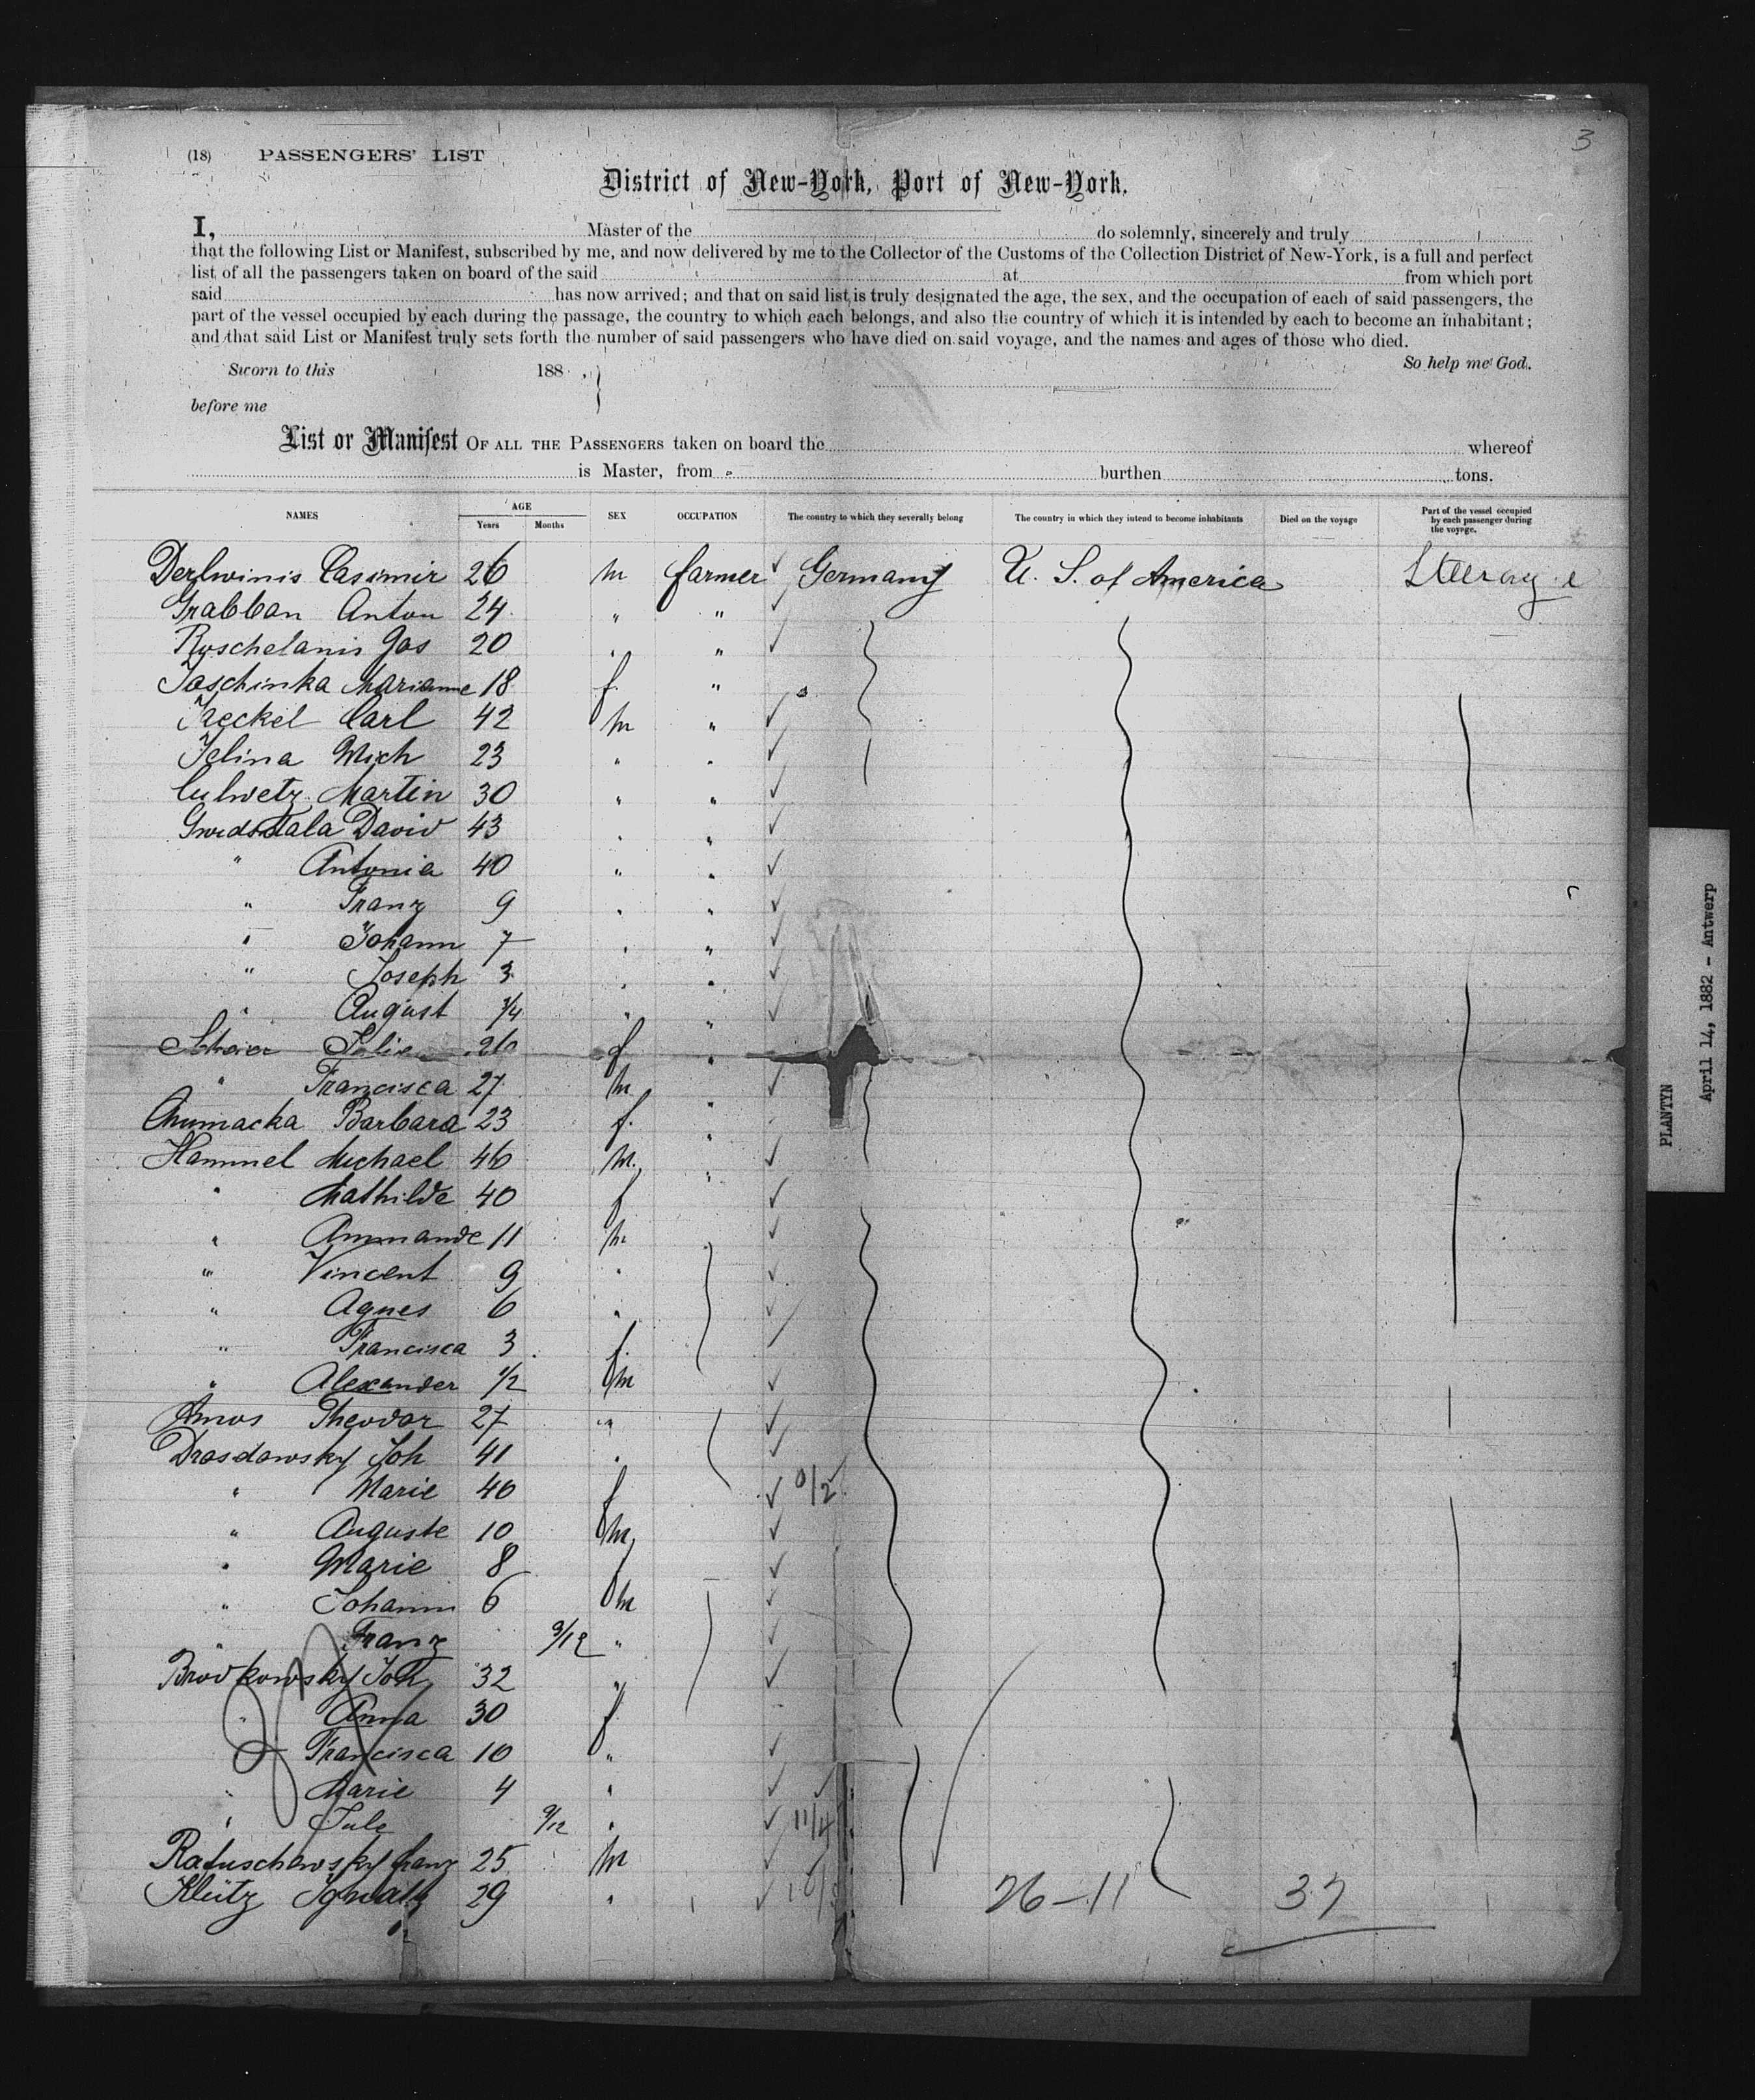 3
(18) PASSENGERS' LIST
District of New-York, Port of New-York.
I, Master of the do solemnly, sincerely and truly
that the following List or Manifest, subscribed by me, and now delivered by me to the Collector of the Customs of the Collection District of New-York, is a full and perfect
list of all the passengers taken on board of the said at from which port
said has now arrived; and that on said list is truly designated the age, the sex, and the occupation of each of said passengers, the
part of the vessel occupied by each during the passage, the country to which each belongs, and also the country of which it is intended by each to become an inhabitant;
and that said List or Manifest truly sets forth the number of said passengers who have died on said voyage, and the names and ages of those who died.
Sworn to this 188 , So help me God.
before me
List or Manifest OF ALL THE PASSENGERS taken on board the whereof
is Master, from burthen tons.
NAMES AGE Years Months SEX OCCUPATION The country to which they severally belong The country in which they intend to become inhabitants Died on the voyage Part of the vessel occupied by each passenger during the voyage.
Derlwinis Casimir 26 m farmer ✓ Germany U. S. of America Steerage
Grabban Anton 24 " " ✓
Ryschelanis Jos 20 " " ✓
Joschinka Marianne 18 f "
Jaeckel Carl 42 m " ✓
Jelina Mich 23 " " ✓
Culwetz Martin 30 " " ✓
David 43 " " ✓
" Antonia 40 " " ✓
" Franz 9 " " ✓
" Johann 7 " " ✓
" Joseph 3 " " ✓
" August 3/4 " " ✓
Julie 26 f "
" Francisca 27 m " ✓
Chumacka Barbara 23 f. "
Hammel Michael 46 m. " ✓
" Mathilde 40 f ✓
" Ammande 11 m ✓
" Vincent 9 " ✓
" Agnes 6 " ✓
" Francisca 3 f. ✓
" Alexander 1/2 m ✓
Amos Theodor 27 " ✓
Drosdowsky Joh 41 " ✓
" Marie 40 f ✓ 0/2
" Auguste 10 m ✓
" Marie 8 f ✓
" Johann 6 m ✓
" Franz 9/12 " ✓
Brodkowsky Joh 32 " ✓
" Anna 30 f
" Francisca 10 " ✓
" Marie 4 " ✓ ✓
" Jule 9/12 " ✓ 11/4
Ratuschowsky Franz 25 m ✓
Klütz Ignatz 29 " ✓ 26-11 37
PLANTYN
April 14, 1882 - Antwerp